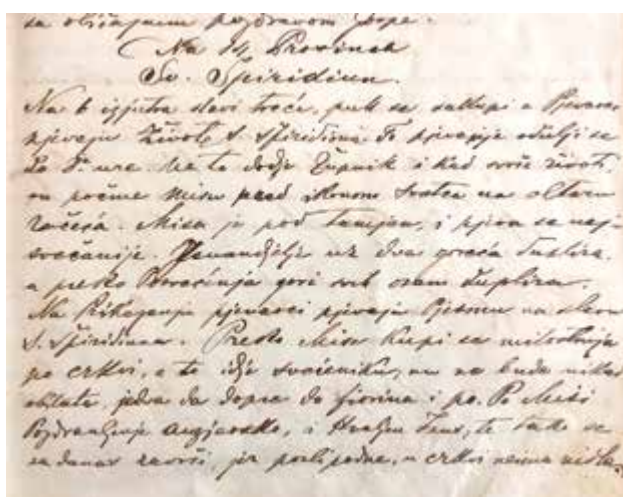 sa običajnim pozdravom pope.
Na 14 Provinca
Sv. Špiridiun.
Na 6 izjutra slavi treće, puk se sakupi a Pjevaoci
pjevaju Život S. Špiridiuna. To pjevanje oduljí se
do 7. ure. Na to dodje Župnik i kad svrše život,
on počme misu pred ikonom Svetca na oltaru
začesá. Misa je pod tamjan, i pjeva se naj-
svečanije. Evandjelje uz dva goreća duplira,
a preko Posvećenja gori svih osam duplira.
Na Prikazanja pjevaoci pjevaju Pjesmu na slavu
S. Špiridiuna. Preko Mise kupi se milostinja
po crkvi, a to idje svećeniku, nu ne bude nikad
obilata, jedva da dopre do fiorina i po. Po Misi
Pozdravljenje Angjeosko, i Hvaljen Isus, te tako se
za danas završi, jer poslipodne, u crkvi neima ništa.